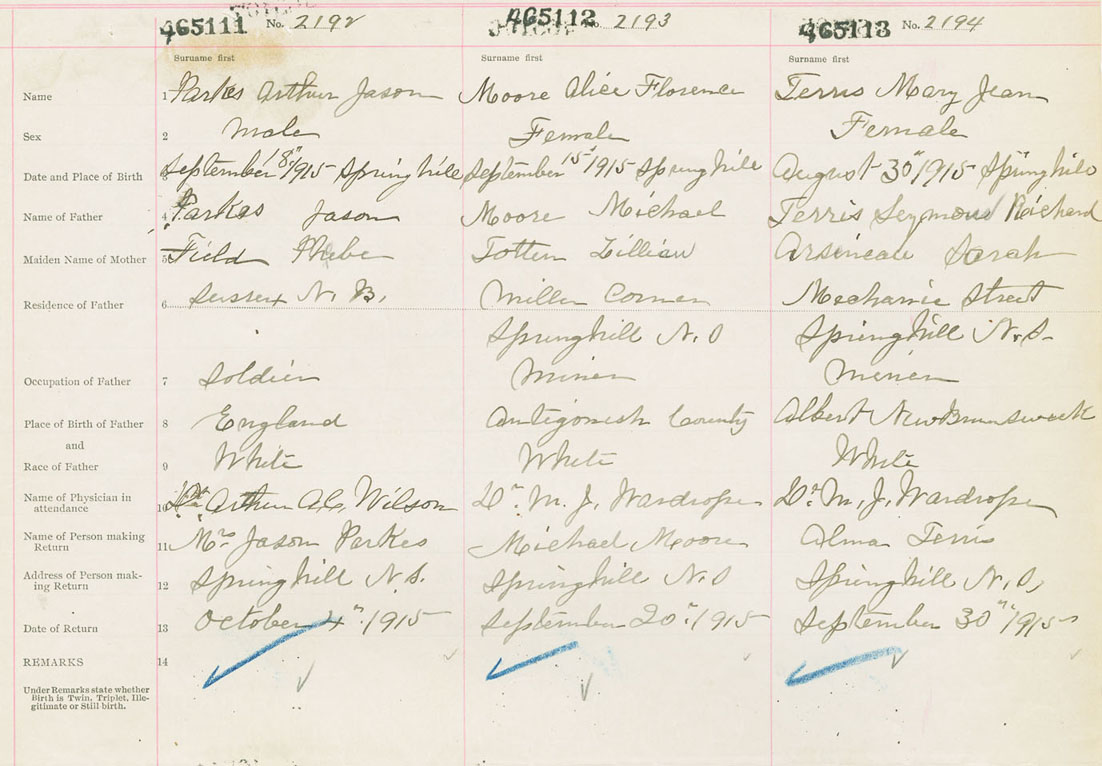 465111 No. 2192 465112 No. 2193 465113 No. 2194
Surname first Surname first Surname first
Name 1 Parkes Arthur Jason Moore Alice Florence Terris Mary Jean
Sex 2 Male Female Female
Date and Place of Birth 3 September 18" 1915 Springhill September 15" 1915 Springhill August 30" 1915 Springhill
Name of Father 4 Parkes Jason Moore Michael Terris Seymour Richard
Maiden Name of Mother 5 Field Phebe Totten Lillian Arsineau Sarah
Residence of Father 6 Sussex N. B. Miller Corner Mechanic Street
Springhill N. S Springhill N. S.
Occupation of Father 7 Soldier Miner Miner
Place of Birth of Father 8 England Antigonish County Albert New Brunswick
and
Race of Father 9 White White White
Name of Physician in
attendance 10 Arthur Wilson Dr. M. J. Wardrope Dr. M. J. Wardrope
Name of Person making
Return 11 Mrs Jason Parkes Michael Moore Alma Terris
Address of Person mak-
ing Return 12 Springhill N.S. Springhill N.S Springhill N.S.
Date of Return 13 October 4" 1915 September 20" 1915 September 30" 1915
REMARKS 14
Under Remarks state whether
Birth is Twin, Triplet, Ille-
gitimate or Still birth.